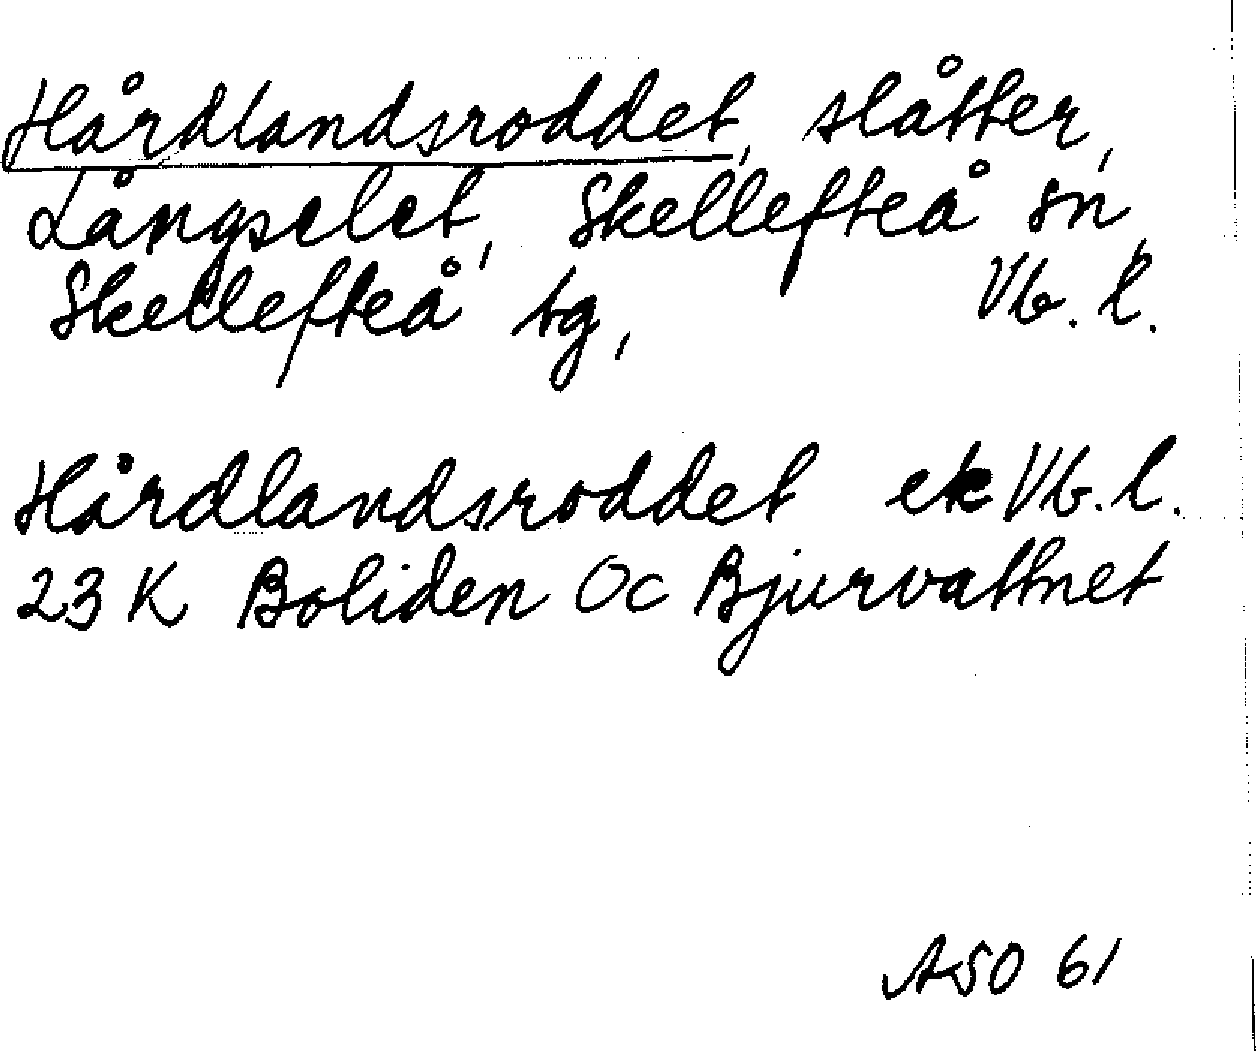 Hårdlandsroddet, slåtter,
Långselet, Skellefteå sn,
Skellefteå tg, Vb. l.
Hårdlandsroddet ek Vb. l.
23 K Boliden Oc Bjurvattnet
ASO 61